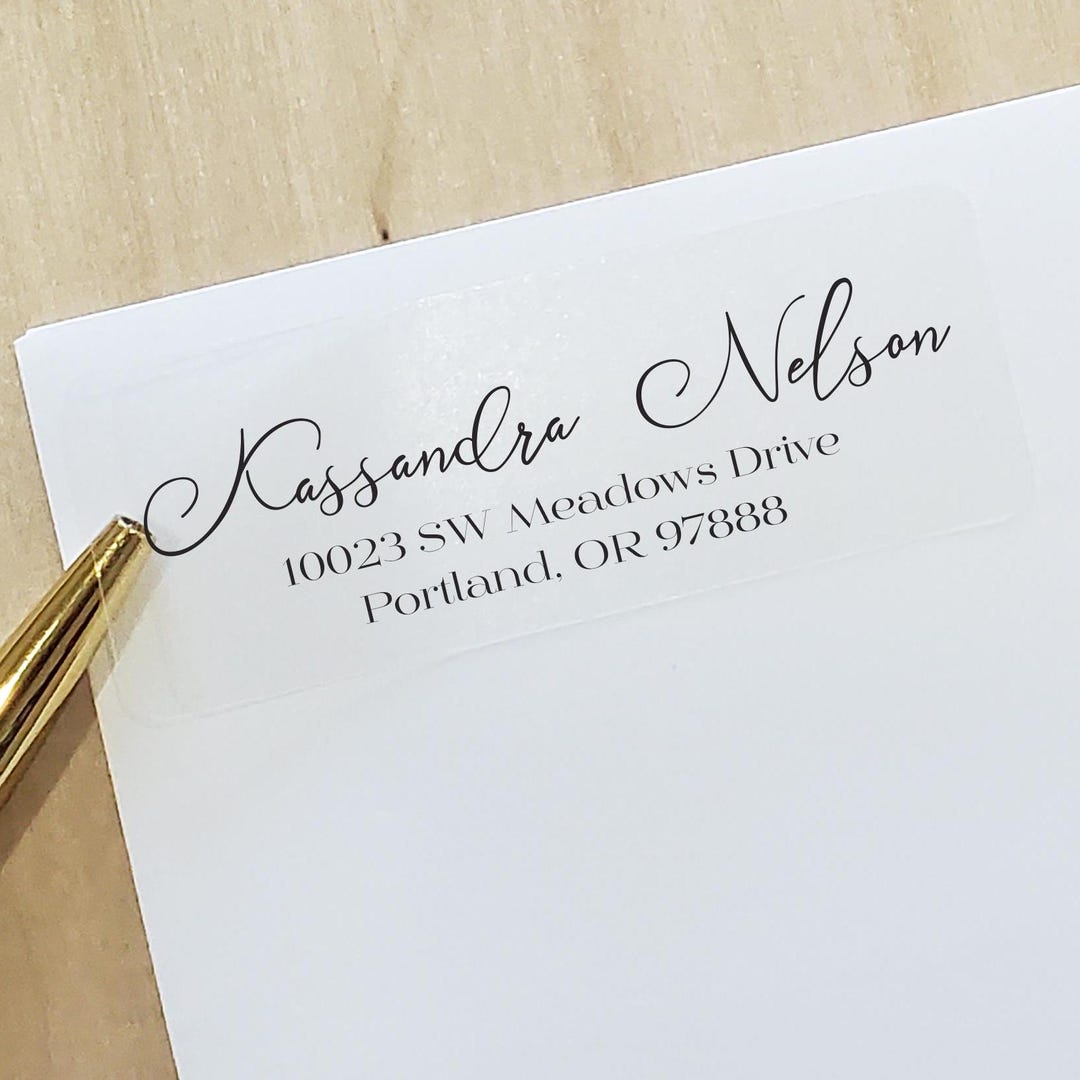 Kassandra Nelson
10023 SW Meadows Drive
Portland, OR 97888